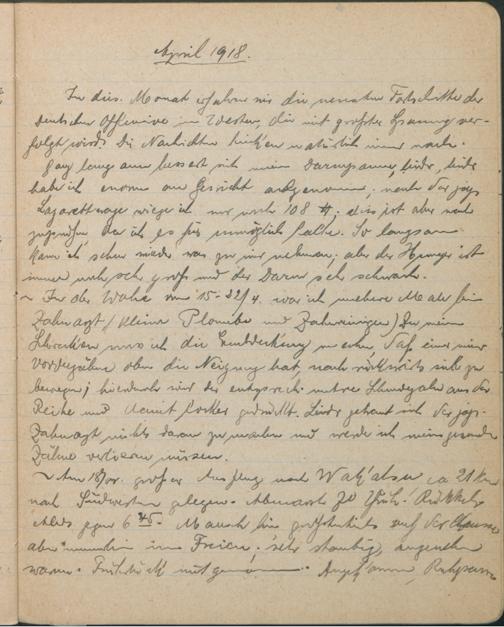 April 1918.
In dies. Monat erfahren wir die neuesten Fortschritte der
deutschen Offensive im Westen, die mit grosster Spannung ver-
folgt wird. Die Nachrichten hinken natürlich immer nach.
Ganz langsam bessert sich mein Darm, leider
habe ich enorm an Gewicht abgenommen; nach der
Lazarettwage wiege ich nur noch 108 ℔; dies ist aber noch
da ich es für unmöglich halte. So langsam
kann ich schon wieder was zu mir nehmen, aber der Hunger ist
immer noch sehr gross und der Darm sehr schwach.
~ In der Woche vom 15-22/4. war ich mehrere Male beim
Zahnarzt (kleine Plombe und Zahnreinigen) Zu meinem
Schrecken muss ich die Entdeckung machen, dass einer meiner
Vorderzähne oben die Neigung hat, nach rückwärts sich zu
bewegen; hierdurch wird der entsprech. untere Schneidezahn aus der
Reihe und damit locker gedrückt. Leider gedenkt der
Zahnarzt nichts daran zu machen und werde ich meine gesunden
Zähne verlieren müssen.
~ Am grosser Ausflug nach ca 21 km
nach Südwesten gelegen. Abmarsch Uhr. Rückkehr
Abends gegen 6 45. Marsch auf der Chaussee
aber im Freien; sehr staubig, angenehm
warm. Frühstück